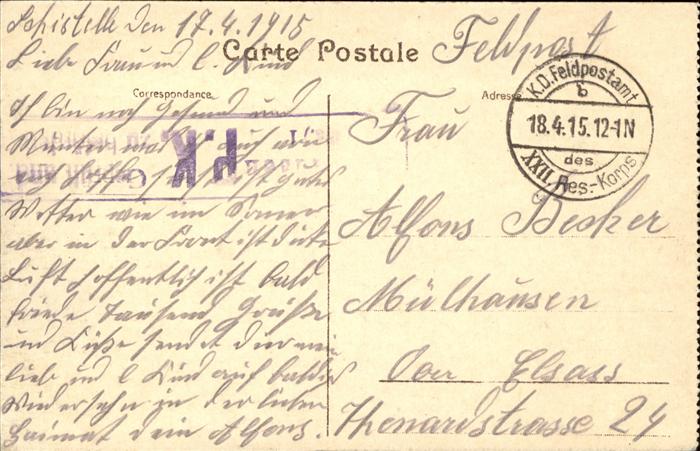 Schistelle den 17.4.1915
Liebe Frau und l. Kind
Carte Postale
Feldpost
Correspondance
Adresse
K.D. Feldpostamt
b
18.4.15.12-1N
des
XXII Res.-Korps
P.K.
Ich bin noch Gesund und
Munter was auch von
ich hoffe ist gutes
Wetter wie im Sommer
aber in der Front ist dicke
Luft hoffentlich ist bald
friede Tausend Grüße
und Küße sendet dir mein
lieb und l Kind auf baldig
Wiedersehn in der lieben
Heimat dein Alfons.
Frau
Alfons Becker
Mülhausen
Ober Elsass
Thenardstrasse 24